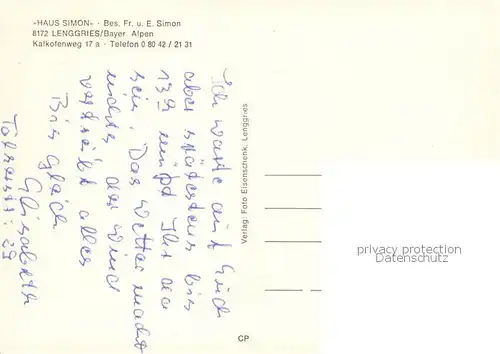 »HAUS SIMON« · Bes. Fr. u. E. Simon
8172 LENGGRIES/Bayer. Alpen
Kalkofenweg 17 a · Telefon 0 80 42 / 21 31
Ich warte auf Euch
aber spätestens bis
13⁰⁰ müßt Ihr da
sein. Das Wetter macht
nichts der Wind
vertreibt alles
Bis gleich
Elisabeth
Verlag: Foto Eisenschenk, Lenggries
CP
privacy protection
Datenschutz